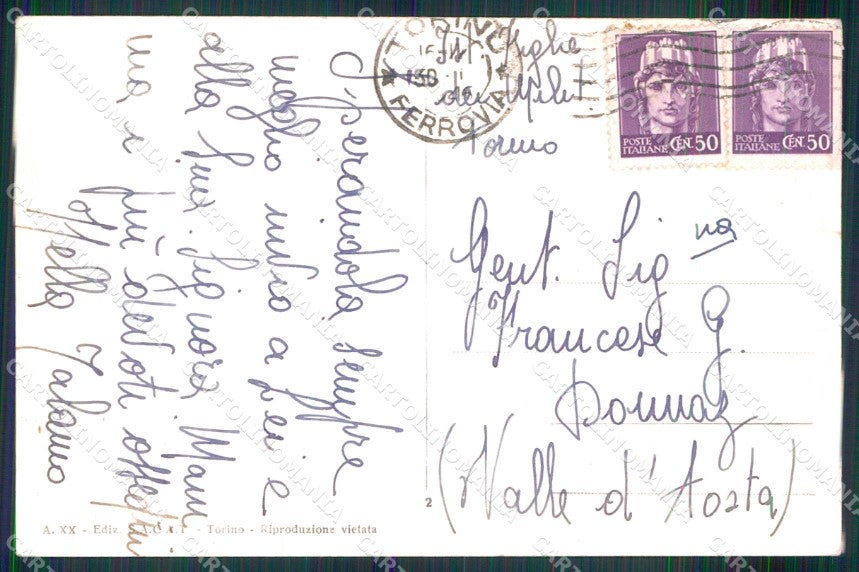 Sperandola sempre
meglio invio a Lei e
alla Sua Signora Mam
ma i più devoti ossequi
Nella
TORINO
FERROVIA
Ist.
Torino
POSTE ITALIANE CENT. 50
POSTE ITALIANE CENT. 50
Gent. Sig na
Francese G.
Donnaz
(Valle d'Aosta)
2
A. XX - Ediz. S.A.C.A.T. - Torino - Riproduzione vietata
CARTOLINOMANIA